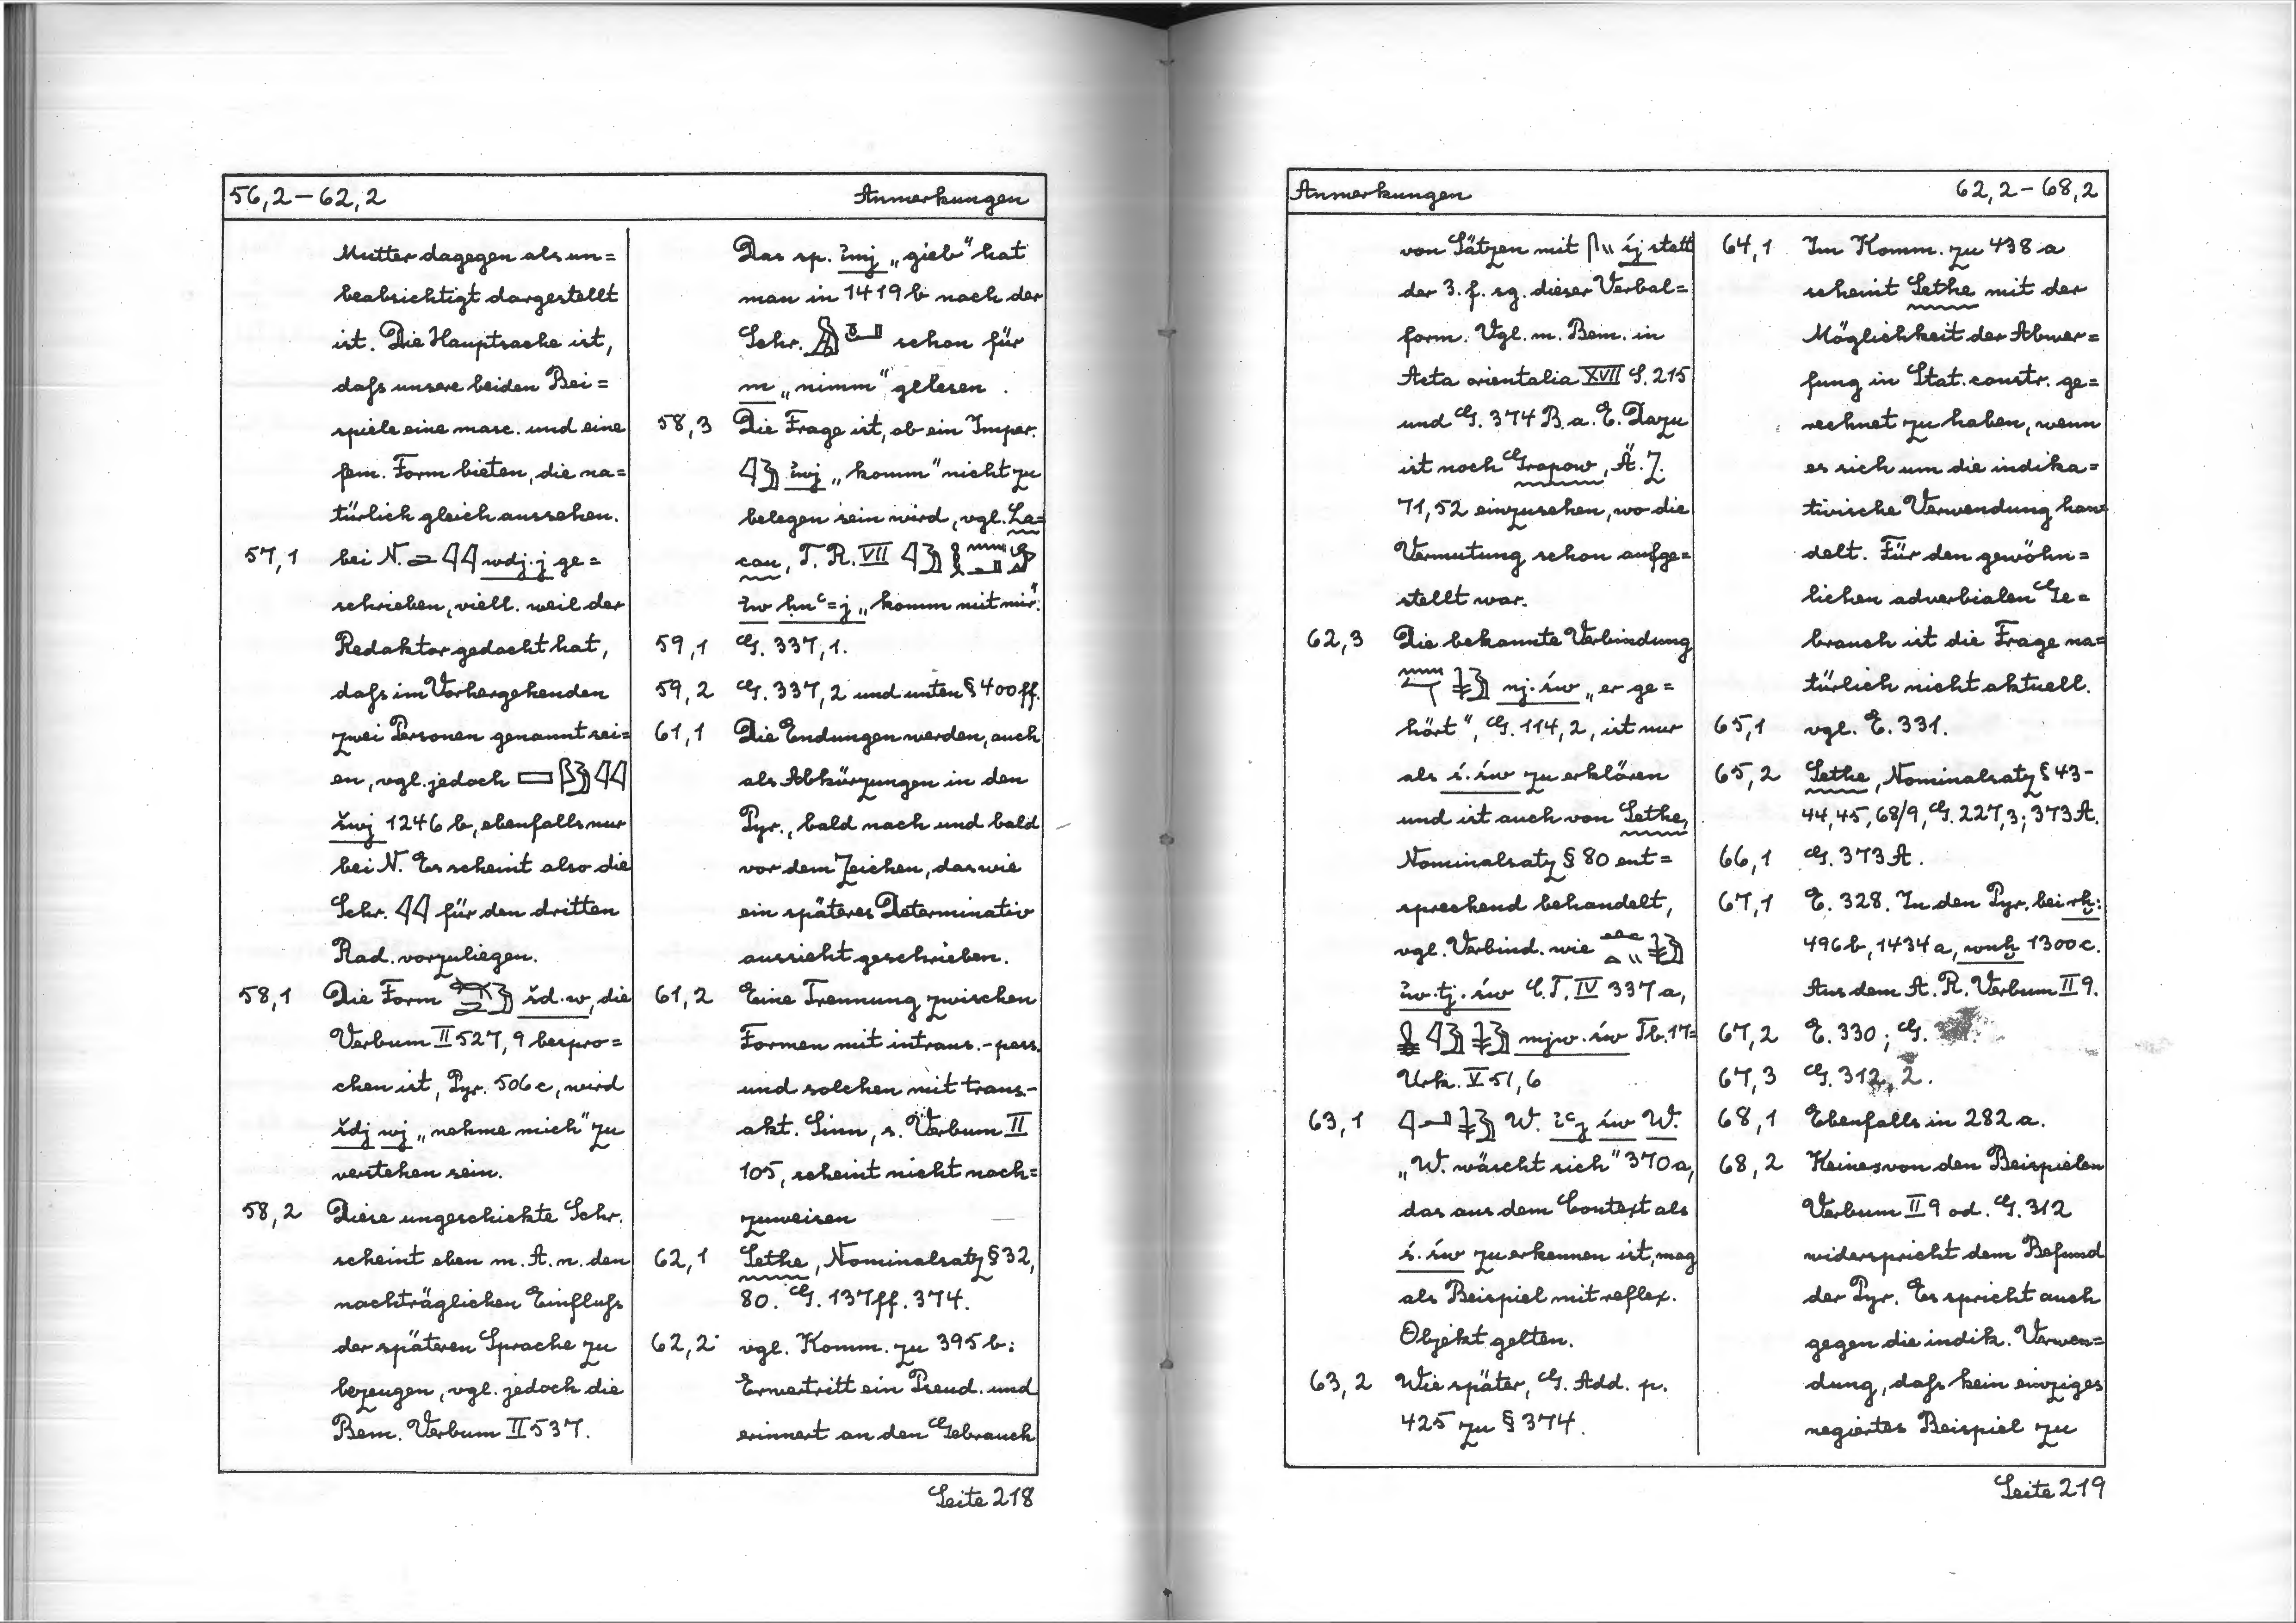 56,2-62,2 Anmerkungen
Mutter dagegen als un=
beabsichtigt dargestellt
ist. Die Hauptsache ist,
daſs unsere beiden Bei=
spiele eine masc. und eine
fem. Form bieten, die na=
türlich gleich aussehen.
57,1 bei N. wdj.j ge=
schrieben, viell. weil der
Redaktor gedacht hat,
daſs im Vorhergehenden
zwei Personen genannt sei=
en, vgl. jedoch
šwj 1246 b, ebenfalls nur
bei N. Es scheint also die
Schr. 𓇋𓇋 für den dritten
Rad. vorzuliegen.
58,1 Die Form šd.w, die
Verbum II 527, 9 bespro=
chen ist, Pyr. 506 c, wird
šdj wj „nehme mich“ zu
verstehen sein.
58,2 Diese ungeschickte Schr.
scheint eben m. A. n. den
nachträglichen Einfluſs
der späteren Sprache zu
bezeugen, vgl. jedoch die
Bem. Verbum II 537.
Das sp. ỉmj „gieb“ hat
man in 1419 b nach der
Schr. schon für
m „nimm“ gelesen.
58,3 Die Frage ist, ob ein Imper.
𓇋𓅱 ỉwj „komm“ nicht zu
belegen sein wird, vgl. La=
cau, T. R. VII
ỉw ḥnꜥ=j „komm mit mir“.
59,1 G. 337,1.
59,2 G. 337,2 und unten § 400 ff.
61,1 Die Endungen werden, auch
als Abkürzungen in den
Pyr., bald nach und bald
vor dem Zeichen, das wie
ein späteres Determinativ
aussieht geschrieben.
61,2 Eine Trennung zwischen
Formen mit intrans.-pass.
und solchen mit trans-
akt. Sinn, s. Verbum II
105, scheint nicht nach=
zuweisen
62,1 Sethe, Nominalsatz § 32,
80. G. 137 ff. 374.
62,2 vgl. Komm. zu 395 b:
Erwertritt ein Pseud. und
erinnert an den Gebrauch
Seite 218
Anmerkungen 62,2-68,2
von Sätzen mit 𓋴𓏭 śj statt
der 3. f. sg. dieser Verbal=
form. Vgl. m. Bem. in
Acta orientalia XVII S. 215
und G. 374 B. a. E. Dazu
ist noch Grapow, Ä. Z.
71,52 einzusehen, wo die
Vermutung schon aufge=
stellt war.
62,3 Die bekannte Verbindung
nj.św „er ge=
hört“, G. 114,2, ist nur
als ś.św zu erklären
und ist auch von Sethe,
Nominalsatz § 80 ent=
sprechend behandelt,
vgl. Verbind. wie
ỉw.tj.św C.T. IV 337 a,
mjw.św Tb. 17=
Urk. V 51,6
63,1 𓇋𓂝𓇓𓅱 W. ỉꜥj św W.
„W. wäscht sich“ 370 a,
das aus dem Context als
ś.św zu erkennen ist, mag
als Beispiel mit reflex.
Objekt gelten.
63,2 Wie später, G. Add. p.
425 zu § 374.
64,1 Im Komm. zu 438 a
scheint Sethe mit der
Möglichkeit der Abwer=
fung in Stat. constr. ge=
rechnet zu haben, wenn
es sich um die indika=
tivische Verwendung han=
delt. Für den gewöhn=
lichen adverbialen Ge=
brauch ist die Frage na=
türlich nicht aktuell.
65,1 vgl. E. 331.
65,2 Sethe, Nominalsatz § 43-
44, 45, 68/9, G. 227,3; 373 A.
66,1 G. 373 A.
67,1 E. 328. In den Pyr. bei rḫ:
496 b, 1434 a, wnḫ 1300 c.
Aus dem A. R. Verbum II 9.
67,2 E. 330; G.
67,3 G. 312, 2.
68,1 Ebenfalls in 282 a.
68,2 Keines von den Beispielen
Verbum II 9 od. G. 312
widerspricht dem Befund
der Pyr. Es spricht auch
gegen die indik. Verwen=
dung, daſs kein einziges
negiertes Beispiel zu
Seite 219